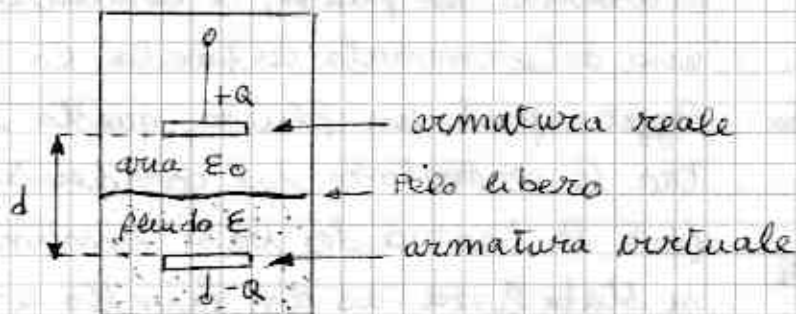 +Q
armatura reale
aria ε0
Pelo libero
d
fluido ε
armatura virtuale
-Q